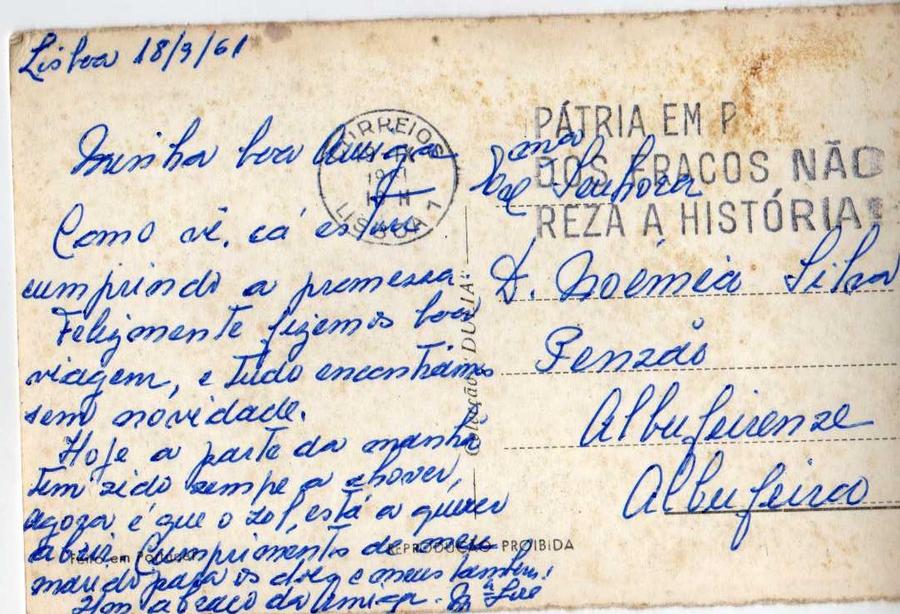 Lisboa 18/9/61
Minha boa Amiga
Como vê, cá estou
cumprindo a promessa.
Felizmente fizemos boa
viagem, e tudo encontrámos
sem novidade.
Hoje a parte da manhã
tem sido sempe a chover,
agora é que o sol, está a querer
abrir. Cumprimentos de meu
marido para os dois e meus também!
Um abraço da amiga.
CORREIOS
LISBOA 1
PÁTRIA EM P
DOS FRACOS NÃO
REZA A HISTÓRIA!
Senhora
D. Noémia Silva
Pensão
Albufeirense
Albufeira
Colecção "DÚLIA"
Feito em Portugal
REPRODUÇÃO PROIBIDA